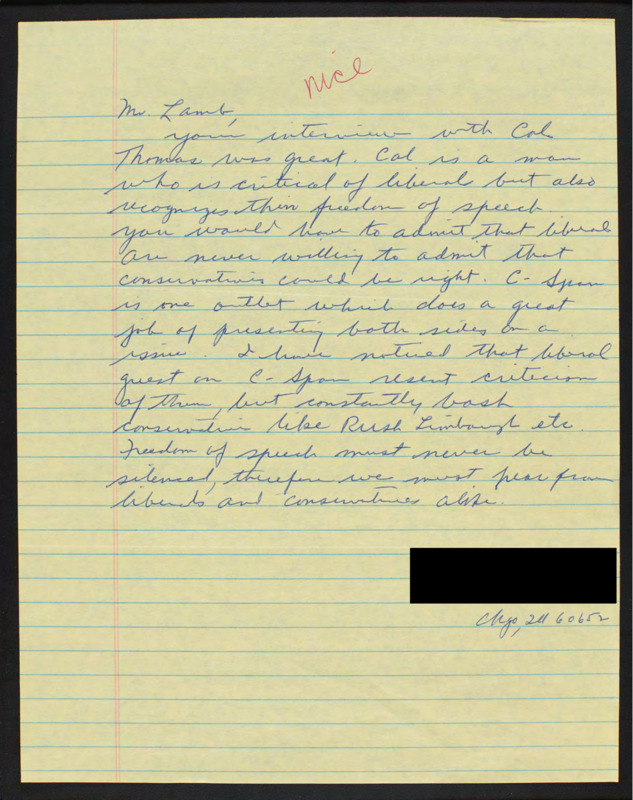 nice
Mr. Lamb,
your interview with Cal
Thomas was great. Cal is a man
who is critical of liberal but also
recognizes their freedom of speech
you would have to admit that liberal
are never willing to admit that
conservatives could be right. C-Span
is one outlet which does a great
job of presenting both sides on a
issue. I have noticed that liberal
guest on C-Span resent criticism
of them, but constantly bash
conservative like Rush Limbaugh etc.
Freedom of speech must never be
silenced, therefore we must hear from
liberals and conservatives alike.
Chgo, Ill 60652